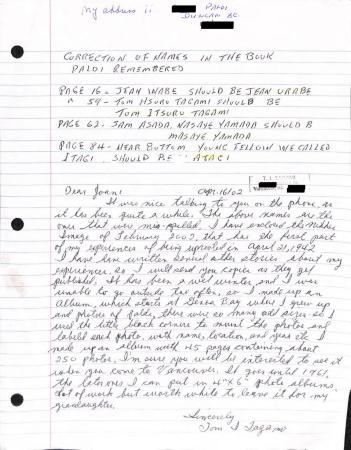 My address is PALDI
DUNCAN BC
CORRECTION OF NAMES IN THE BOOK
PALDI REMEMBERED
PAGE 16 - JEAN WABE SHOULD BE JEAN URABE
" 59 - TOM HSURU TAGAMI SHOULD BE
TOM ITSURU TAGAMI
PAGE 62 - SAM ASADA, NASAYE YAMADA SHOULD B
MASAYE YAMADA
PAGE 84 - NEAR BOTTOM YOUNG FELLOW WE CALLED
ITAGI SHOULD BE ATAGI
T. I. TAGAMI
16/02
Dear Joan:
It was nice talking to you on the phone, as
it has been quite a while. The above names are the
ones that were mis-spelled. I have enclosed the Nikkei
Image of February 2002, that is the first part
of my experiences of being uprooted in April 21, 1942
I have written several other stories about my
experiences so I will send you copies as they get
published. It has been a wet winter and I was
unable to go outside too often, so I made up an
Album, which starts at Genoa Bay where I grew up
and photos of Paldi, there were so many odd sizes so I
used the little black corners to mount the photos and
labelled each photo, with name, location, and year etc. I
made up an album with 45 pages containing about
250 photos. I'm sure you will be interested to see it
when you come to Vancouver. It goes until 1961,
the later ones I can put in 4"x6" photo albums.
Lot of work but worth while to leave it for my
grandaughter.
Sincerely
Tom I Tagami